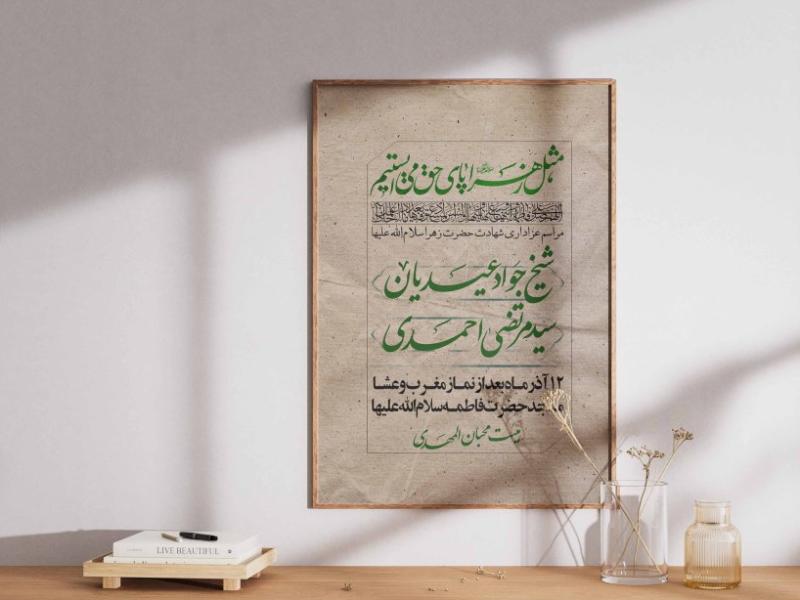 مثل زهرا پای حق می ایستیم
مراسم عزاداری شهادت حضرت زهرا سلام الله علیها
شیخ جواد عیدیان
سید مرتضی احمدی
۱۲ آذر ماه بعد از نماز مغرب و عشا
مسجد حضرت فاطمه سلام الله علیها
هیئت محبان المهدی
LIVE BEAUTIFUL